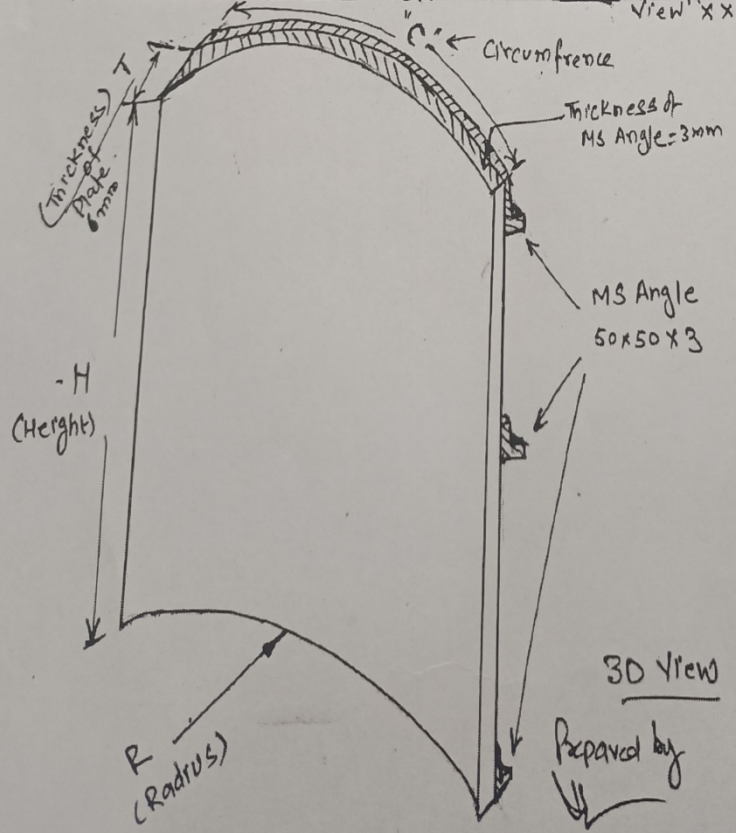 View X X
"C"
Circumfrence
Thickness of
MS Angle=3mm
T
(Thickness)
of
Plate
6mm
MS Angle
50x50x3
-H
(Height)
R
(Radius)
3D View
Prepared by